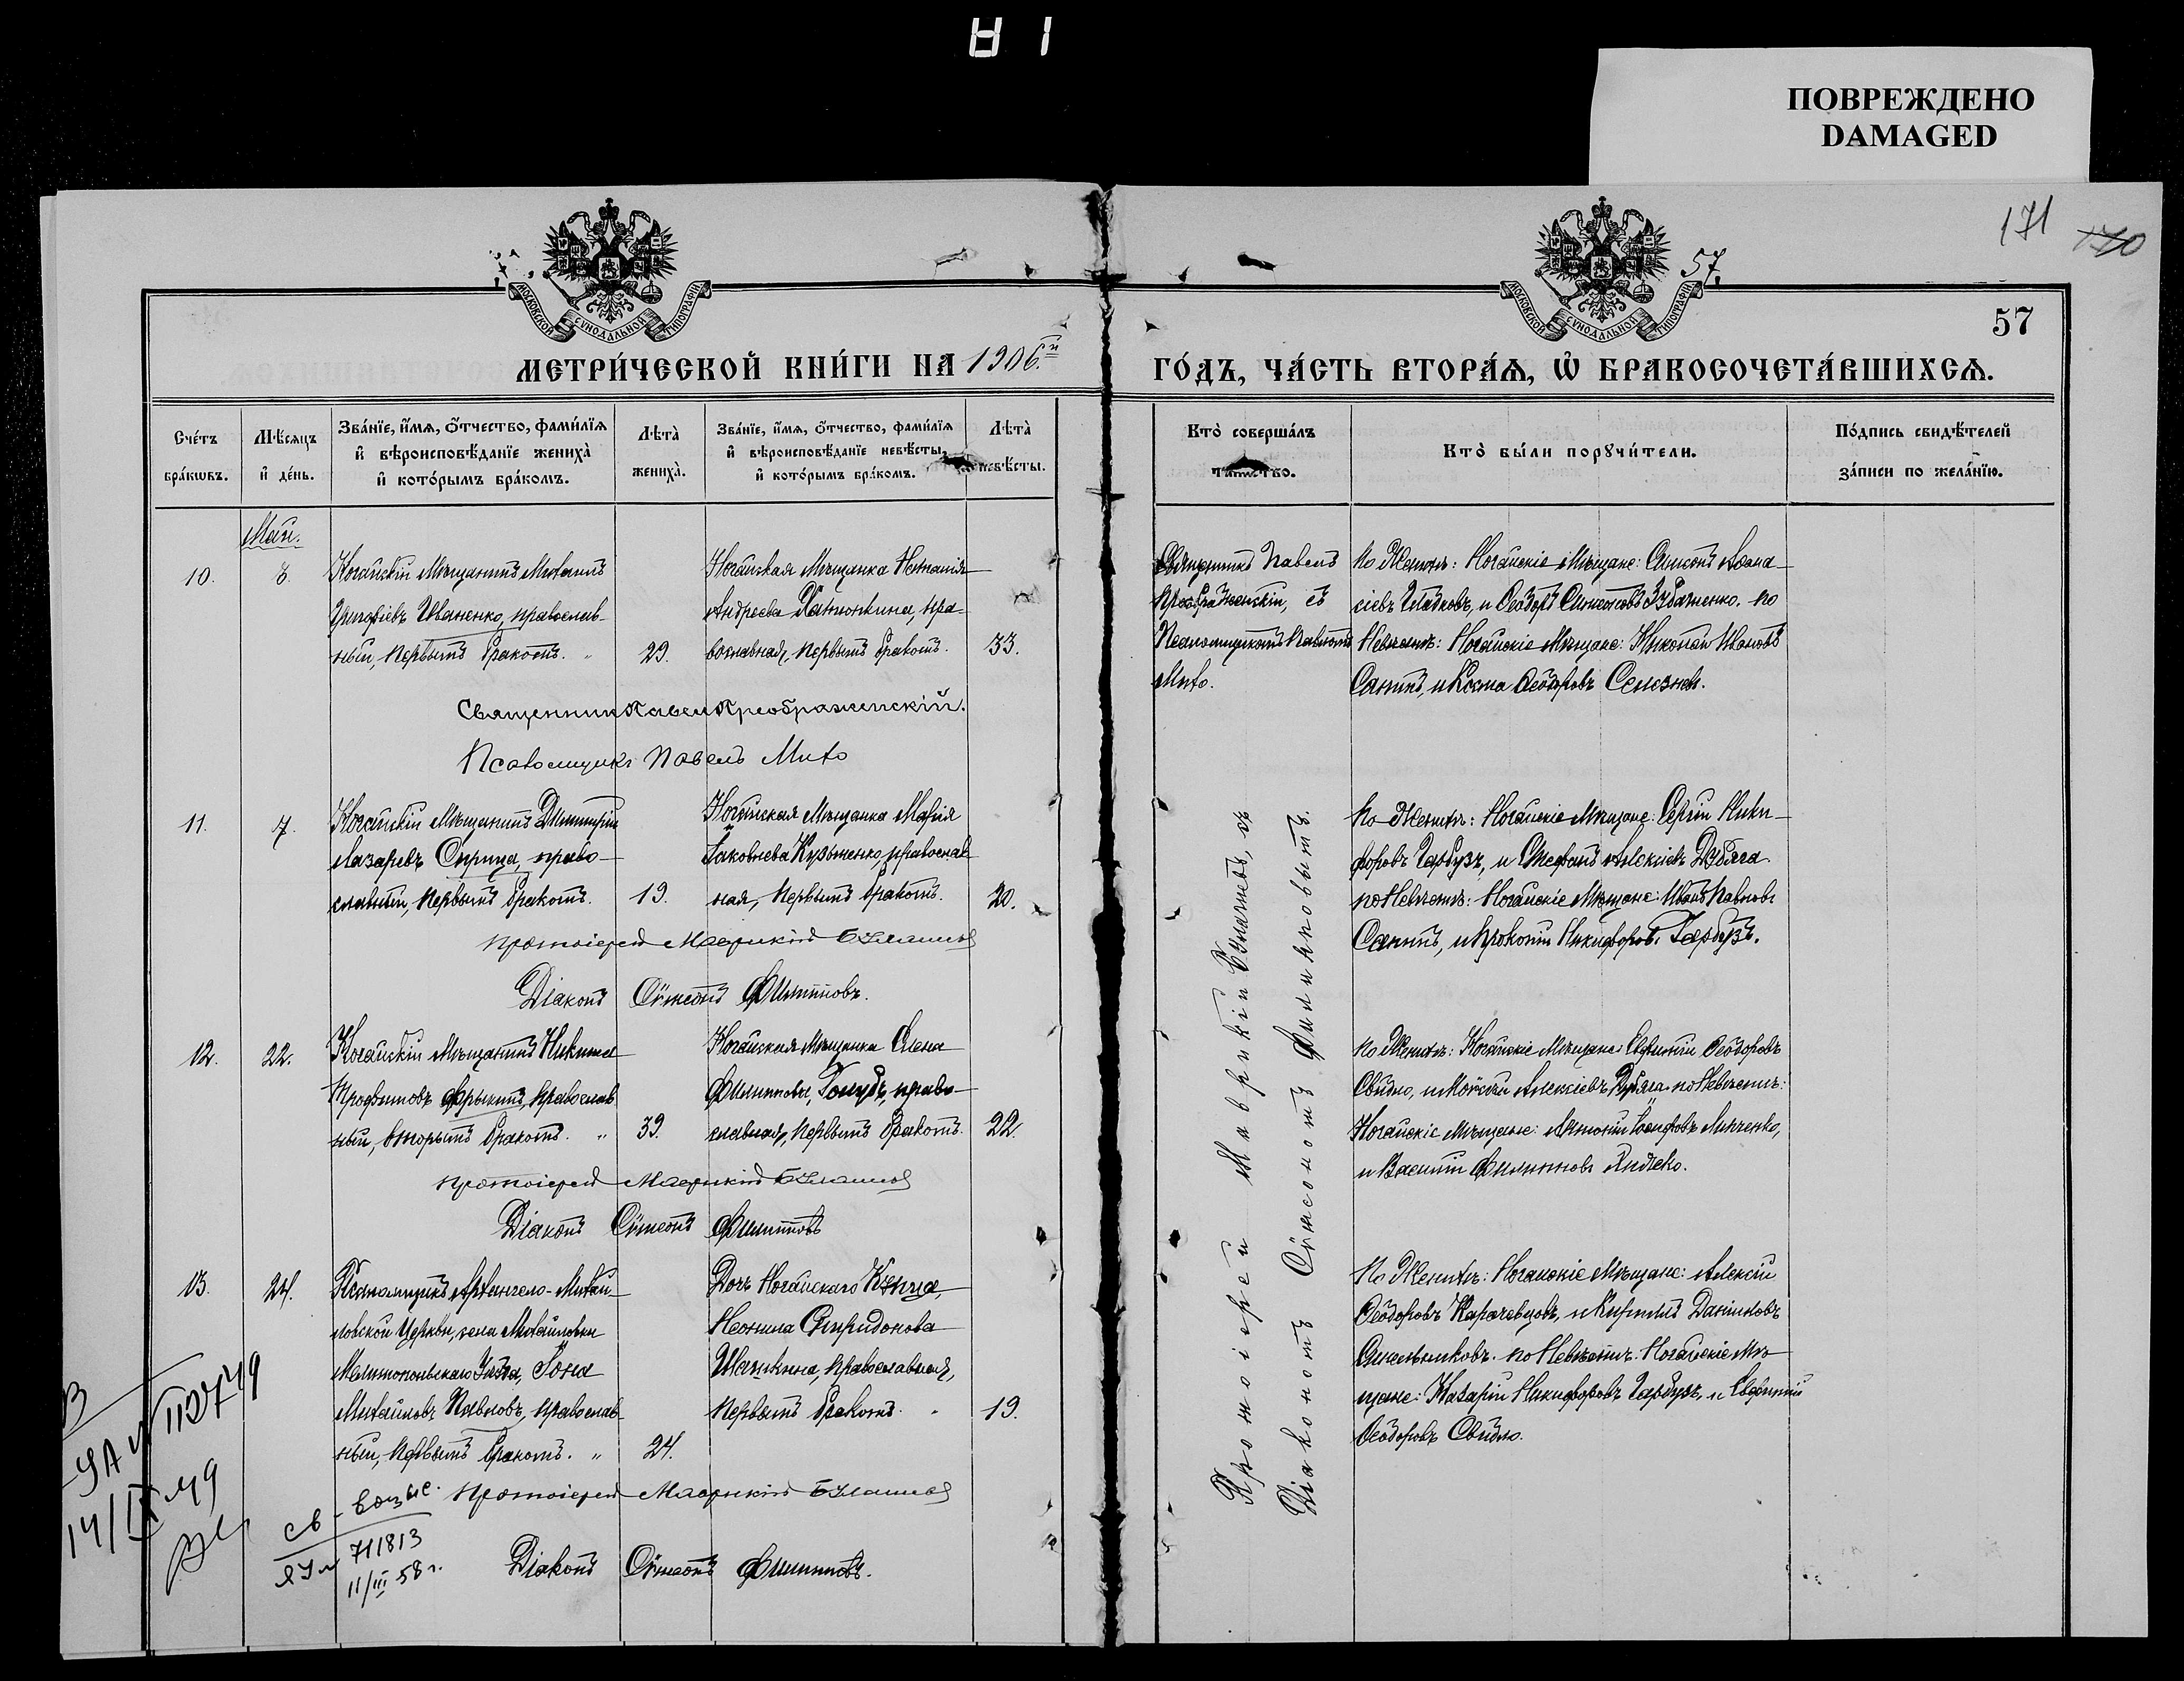 ПОВРЕЖДЕНО
DAMAGED
171
170
57.
57
МОСКОВСКОЙ СѴНОДАЛЬНОЙ ТИПОГРАФІИ
МОСКОВСКОЙ СѴНОДАЛЬНОЙ ТИПОГРАФІИ
МЕТРИ́ЧЕСКОЙ КНИ́ГИ НА 1906.й ГО́ДЪ, ЧА́СТЬ ВТОРА́Ѧ, Ѡ БРАКОСОЧЕТА́ВШИХСѦ.
Сче́тъ
бра́кѡвъ.
Мѣ́сяцъ
и҆ де́нь.
Зва́нїе, и҆́мѧ, ѻ҆́тчество, фами́лїѧ
и҆ вѣроисповѣ́данїе жениха̀
и҆ кото́рымъ бра́комъ.
Лѣта̀
жениха̀.
Зва́нїе, и҆́мѧ, ѻ҆́тчество, фами́лїѧ
и҆ вѣроисповѣ́данїе невѣ́сты,
и҆ кото́рымъ бра́комъ.
Лѣта̀
невѣ́сты.
Кто̀ соверша́лъ
та́инство.
Кто̀ бы́ли порꙋчи́тели.
По́дпись свидѣ́телей
за́писи по жела́нїю.
Май.
10.
8.
Ногайскій Мѣщанинъ Михаилъ
Григоріевъ Иваненко, православ-
ный, первымъ бракомъ. "
29.
Ногайская Мѣщанка
Андреева пра-
вославная, первымъ бракомъ.
33.
Священникъ Павелъ
Преображенскій, съ
Псаломщикомъ Павломъ
Михо.
По Женихѣ: Ногайскіе Мѣщане: Симеонъ Аѳана-
сіевъ Гладковъ, и Ѳеодоръ Симеоновъ По
Невѣстѣ: Ногайскіе Мѣщане: Николай Ивановъ
Санинъ, и Косма Ѳеодоровъ Селезнев.
Священникъ Павелъ Преображенскій.
Псаломщикъ Павелъ Михо
11.
7.
Ногайскій Мѣщанинъ Димитрій
Лазаревъ Скрица, право-
славный, первымъ бракомъ.
19.
Ногайская Мѣщанка Марія
Іаковлева Кузьменко, православ-
ная, первымъ бракомъ.
20.
По Женихѣ: Ногайскіе Мѣщане: Сергій Ники-
форовъ Гарбузъ, и Стефанъ Алексіевъ Дубяга
по Невѣстѣ: Ногайскіе Мѣщане: Иванъ Павловъ
Санинъ, и Прокопій Никифоровъ Гарбузъ.
Протоіерей Маврикій
Діаконъ Сѵмеонъ Филипповъ.
12.
22.
Ногайскій Мѣщанинъ Никита
Трофимовъ православ
ный, вторымъ бракомъ. "
39.
Ногайская Мѣщанка Елена
Филиппова, Голубъ, право-
славная, первымъ бракомъ.
22.
По Женихѣ: Ногайскіе Мѣщане: Евфимій Ѳеодоровъ
Свидло, и Моѵсей Алексіевъ Дубяга по Невѣстѣ:
Ногайскіе Мѣщане: Антоній Іосифовъ Линченко,
и Василій Филипповъ
Протоіерей Маврикій
Діаконъ Сѵмеонъ Филипповъ
Протоіерей Маврикій съ
Діакономъ Сѵмеономъ Филипповымъ.
13.
24.
Псаломщикъ Архангело-Михай-
ловской Церкви, села Михайловки
Мелитопольскаго Уѣзда, Іона
Михайловъ Павловъ, православ-
ный, первымъ бракомъ. "
24.
Дочь Ногайскаго Купца,
Неонила Спиридонова
Шапкина, православная,
первымъ бракомъ. "
19.
По Женихѣ: Ногайскіе Мѣщане: Алексій
Ѳеодоровъ Карачевцовъ, и Кириллъ Даниловъ
по Невѣстѣ: Ногайскіе Мѣ-
щане: Назарій Никифоровъ Гарбузъ, и Евфимій
Ѳеодоровъ Свидло.
Протоіерей Маврикій
Діаконъ Сѵмеонъ Филипповъ.
14/IX 49
711813
11/III 58 г.